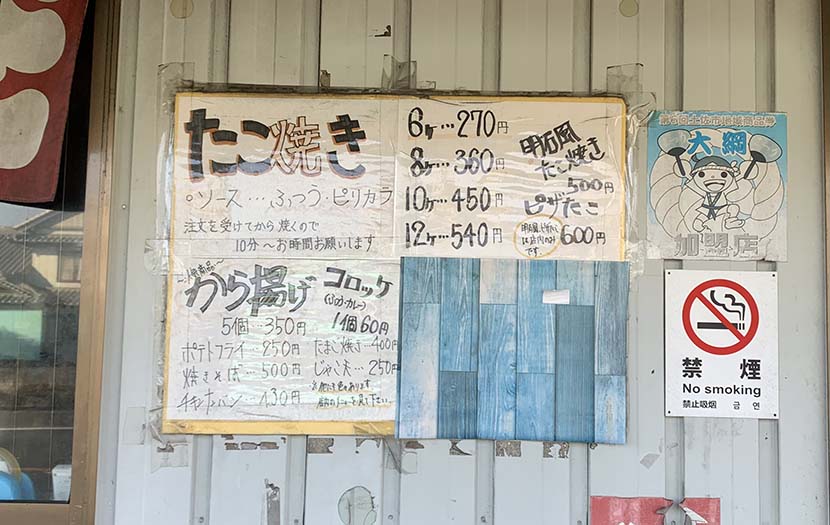 たこ焼き
。ソース…ふつう・ピリカラ
注文を受けてから焼くので
10分〜お時間お願いします
6ヶ…270円
8ヶ…360円
10ヶ…450円
12ヶ…540円
明石風
たこ焼き
500円
ピザたこ
600円
から揚げ
5個…350円
コロッケ
1個60円
ポテトフライ…250円
焼きそば…500円
チャンナンバン…430円
たまご焼き…400円
じゃこ天…250円
大綱
加盟店
禁煙
No smoking
禁止吸烟 금연